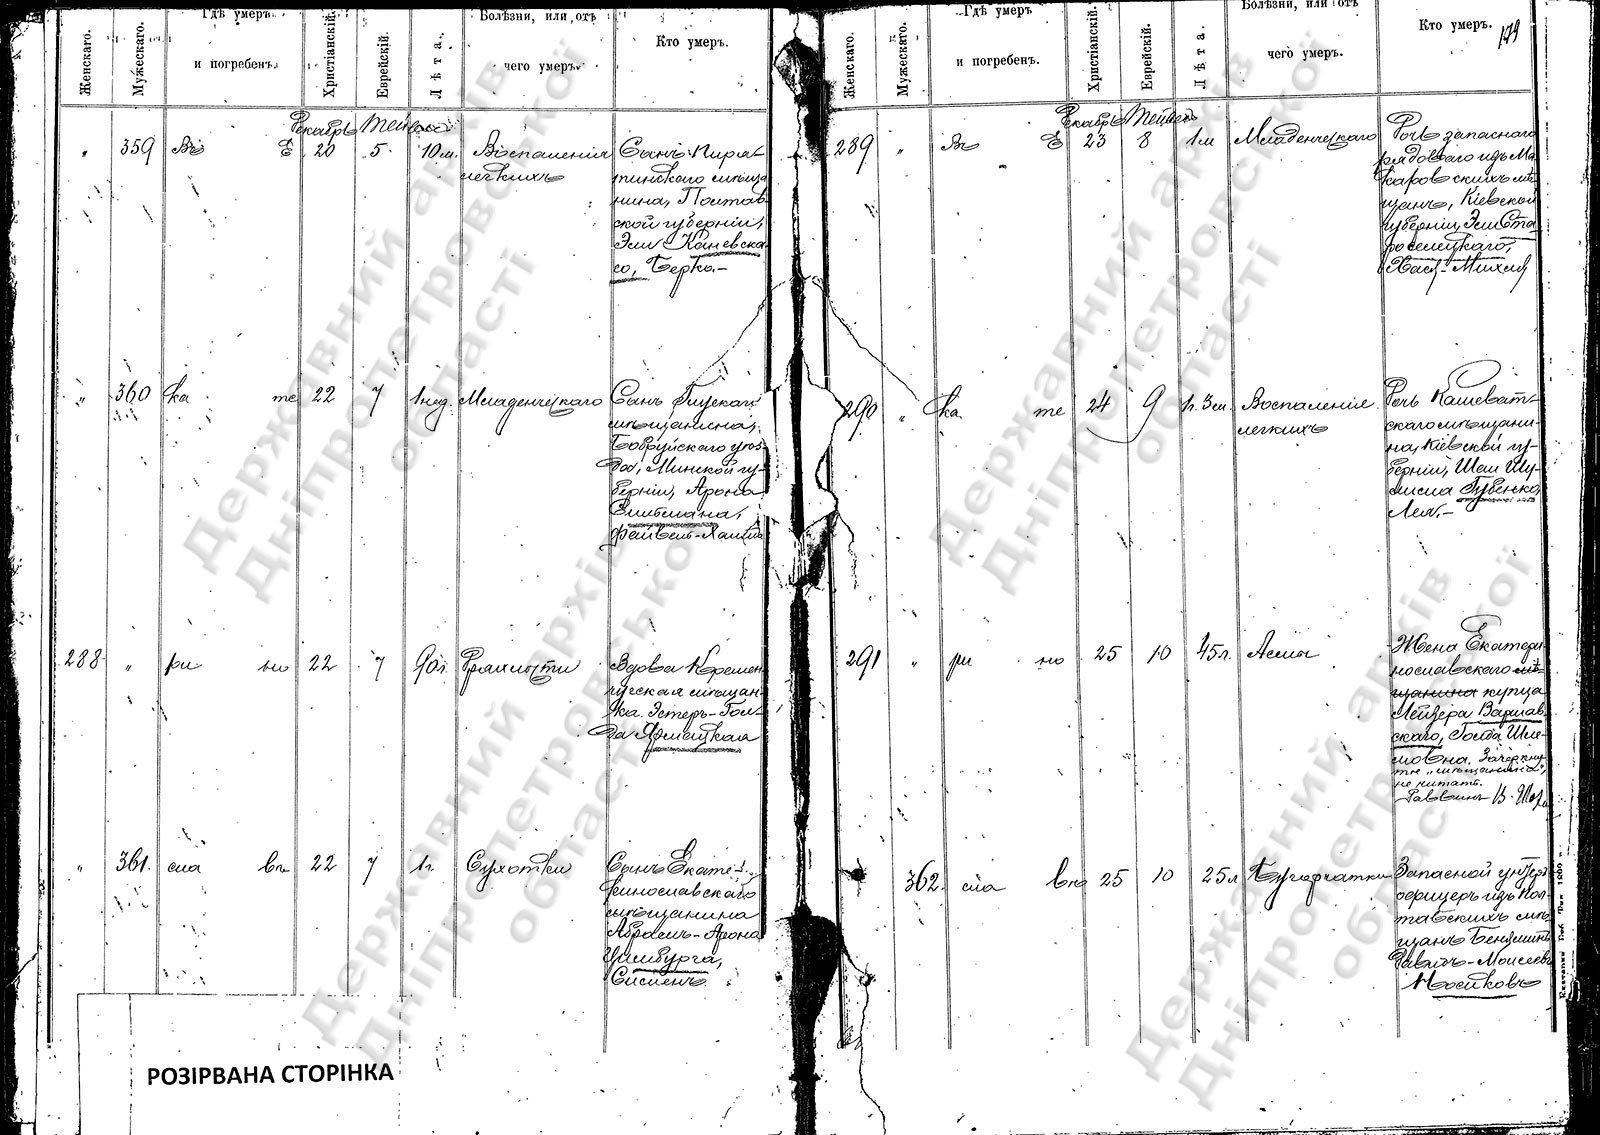 Женскаго.
Мужескаго.
Гдѣ умеръ
и погребенъ.
Христіанскій.
Еврейскій.
Лѣта.
Болѣзни, или отъ
чего умеръ.
Кто умеръ.
Декабрь Тейвесъ
„ 359 Въ Е 20 5 10м. Воспаленія
легкихъ
Сынъ Пиря-
тинскаго мѣща
нина, Полтав
ской губерніи,
Эли Каневска-
го, Берко.-
„ 360 ка те 22 7 1 нед. Младенческаго
Сынъ Глускаго
мѣщанина,
Бобруйскаго уѣз-
да, Минской гу-
берніи, Арона
288 „ ри но 22 7 90л. Дряхлости
Вдова Кремен
чугская мѣщан-
ка Эстеръ-Гол-
да
„ 361. сла въ 22 7 1г. Сухотки
Сынъ Екате-
ринославскаго
мѣщанина
Абрамъ-Арона
Цимбурга,
РОЗІРВАНА СТОРІНКА
Женскаго.
Мужескаго.
Гдѣ умеръ
и погребенъ.
Христіанскій.
Еврейскій.
Лѣта.
Болѣзни, или отъ
чего умеръ.
Кто умеръ.
179
Декабрь Тейвесъ
289 „ Въ Е 23 8 1м Младенческаго
Дочь запаснаго
рядоваго изъ Ма
каровскихъ мѣ
щанъ, Кіевской
губерніи, Эли Ста
роселецкаго,
290 „ ка те 24 9 1г. 3м. Воспаленія
легкихъ
Дочь Кашеват-
скаго мѣщани-
на, Кіевской гу-
берніи, Шаи Шу-
лима Губенко,
Лея.-
291 „ ри но 25 10 45л. Асмы
Жена Екатери
нославскаго мѣ
щанина купца
Мейера Варшав
скаго, Голда Шле-
мовна. Зачеркну-
то „мѣщанина“,
не читать.
Раввинъ В. Шор
362. сла въ 25 10 25л Бугорчатки
Запасной унтеръ
офицеръ изъ Пол
тавскихъ мѣ
щанъ Беніаминъ
Давидъ-Моисеевъ
Носиковъ
Державний архів
Дніпропетровської
області